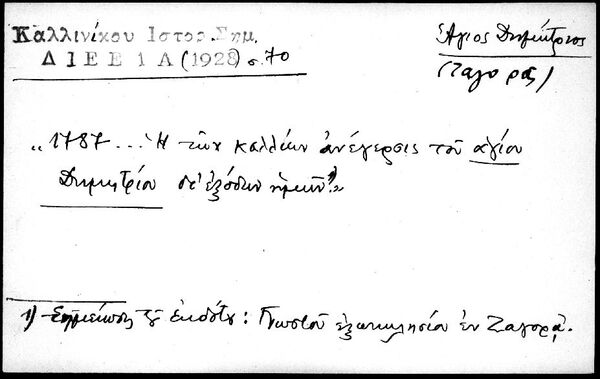 Καλλινίκου Ιστορ. Σημ.
ΔΙΕΕ 1 Α (1928) σ. 70
Ἅγιος Δημήτριος
(Ζαγορᾶς)
„1787 ... Ἡ τῶν καλλίων ἀνέγερσις τοῦ ἁγίου
Δημητρίου δι' ἐξόδων ἡμῶν¹⁾"
1) Σημείωσις τοῦ ἐκδότου: Γνωστοῦ ἐξωκκλησίου ἐν Ζαγορᾷ.